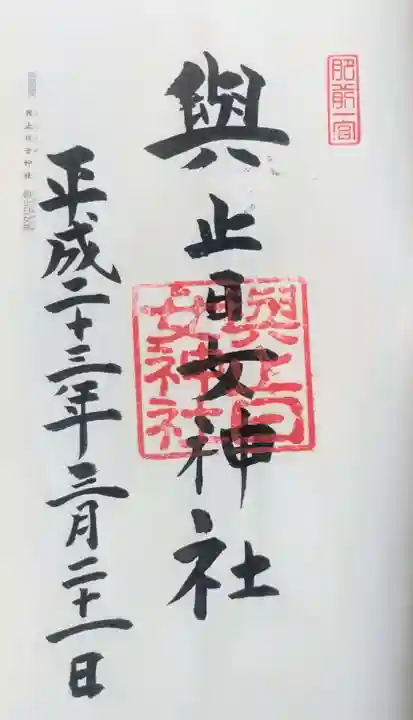 肥前一宮
與止日女神社
與止日女神社
平成二十三年三月二十一日
與止日女神社